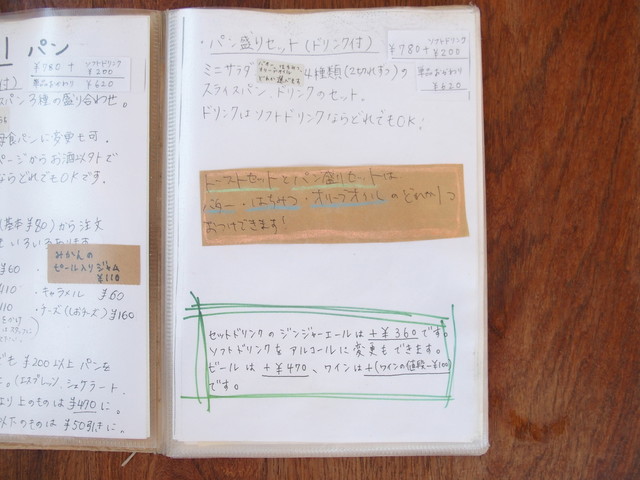 パン
¥780+ ソフトドリンク ¥200
単品おかわり ¥620
スパン3種の盛り合わせ。
食パンに変更も可。
ページからお酒以外で
ならどれでもOKです。
(基本¥80)から注文
いろいろあります。
みかんの
ピール入りジャム
¥110
¥60 ・キャラメル ¥60
¥160
も¥200以上パンを
上のものは¥470に。
以下のものは¥50引きに。
・パン盛りセット(ドリンク付)
¥780+ ソフトドリンク ¥200
単品おかわり ¥620
ミニサラダ 4種類(2切れずつ)の
スライスパン、ドリンクのセット。
ドリンクはソフトドリンクならどれでもOK!
トーストセットとパン盛りセットは
バター・はちみつ・オリーブオイルのどれか1つ
おつけできます!
セットドリンクのジンジャーエールは+¥360です。
ソフトドリンクをアルコールに変更もできます。
ビールは+¥470、ワインは+(ワインの値段-¥100)
です。